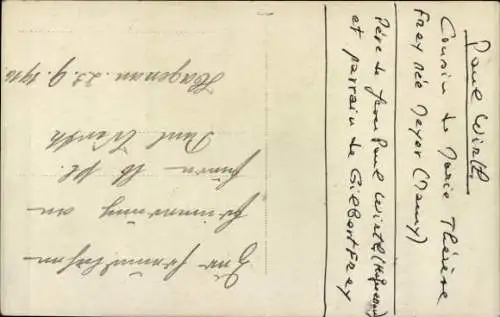 Paul Wirth
Cousin de Marie Thérèse
Frey née Meyer (Mamy)
Père de Jean Paul Wirth
et parrain de Gilbert Frey
Zur freundlichen
Erinnerung an
Paul Wirth
Hagenau. 23.9.1916